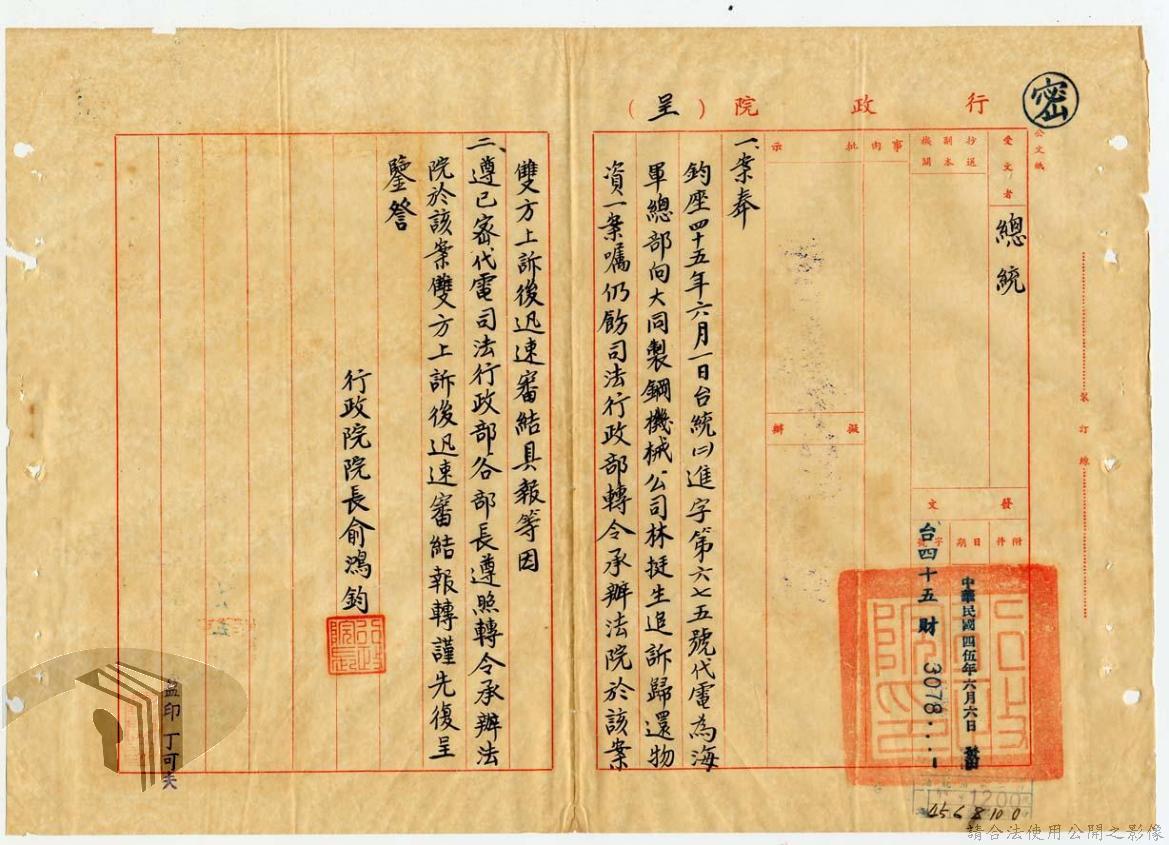 密
行政院（呈）
公文紙
受文者
總統
抄送副本機關
事由
批示
擬辦
發文
附件
日期
字號
中華民國四伍年六月六日
台四十五財3078....1
裝訂線
一、案奉
鈞座四十五年六月一日台統㈡進字第六七五號代電為海
軍總部向大同製鋼機械公司林挺生追訴歸還物
資一案囑仍飭司法行政部轉令承辦法院於該案
雙方上訴後迅速審結具報等因
二、遵已密代電司法行政部谷部長遵照轉令承辦法
院於該案雙方上訴後迅速審結報轉謹先復呈
鑒詧
行政院院長俞鴻鈞
行政院長
監印丁可夫
1200
4568100
請合法使用公開之影像